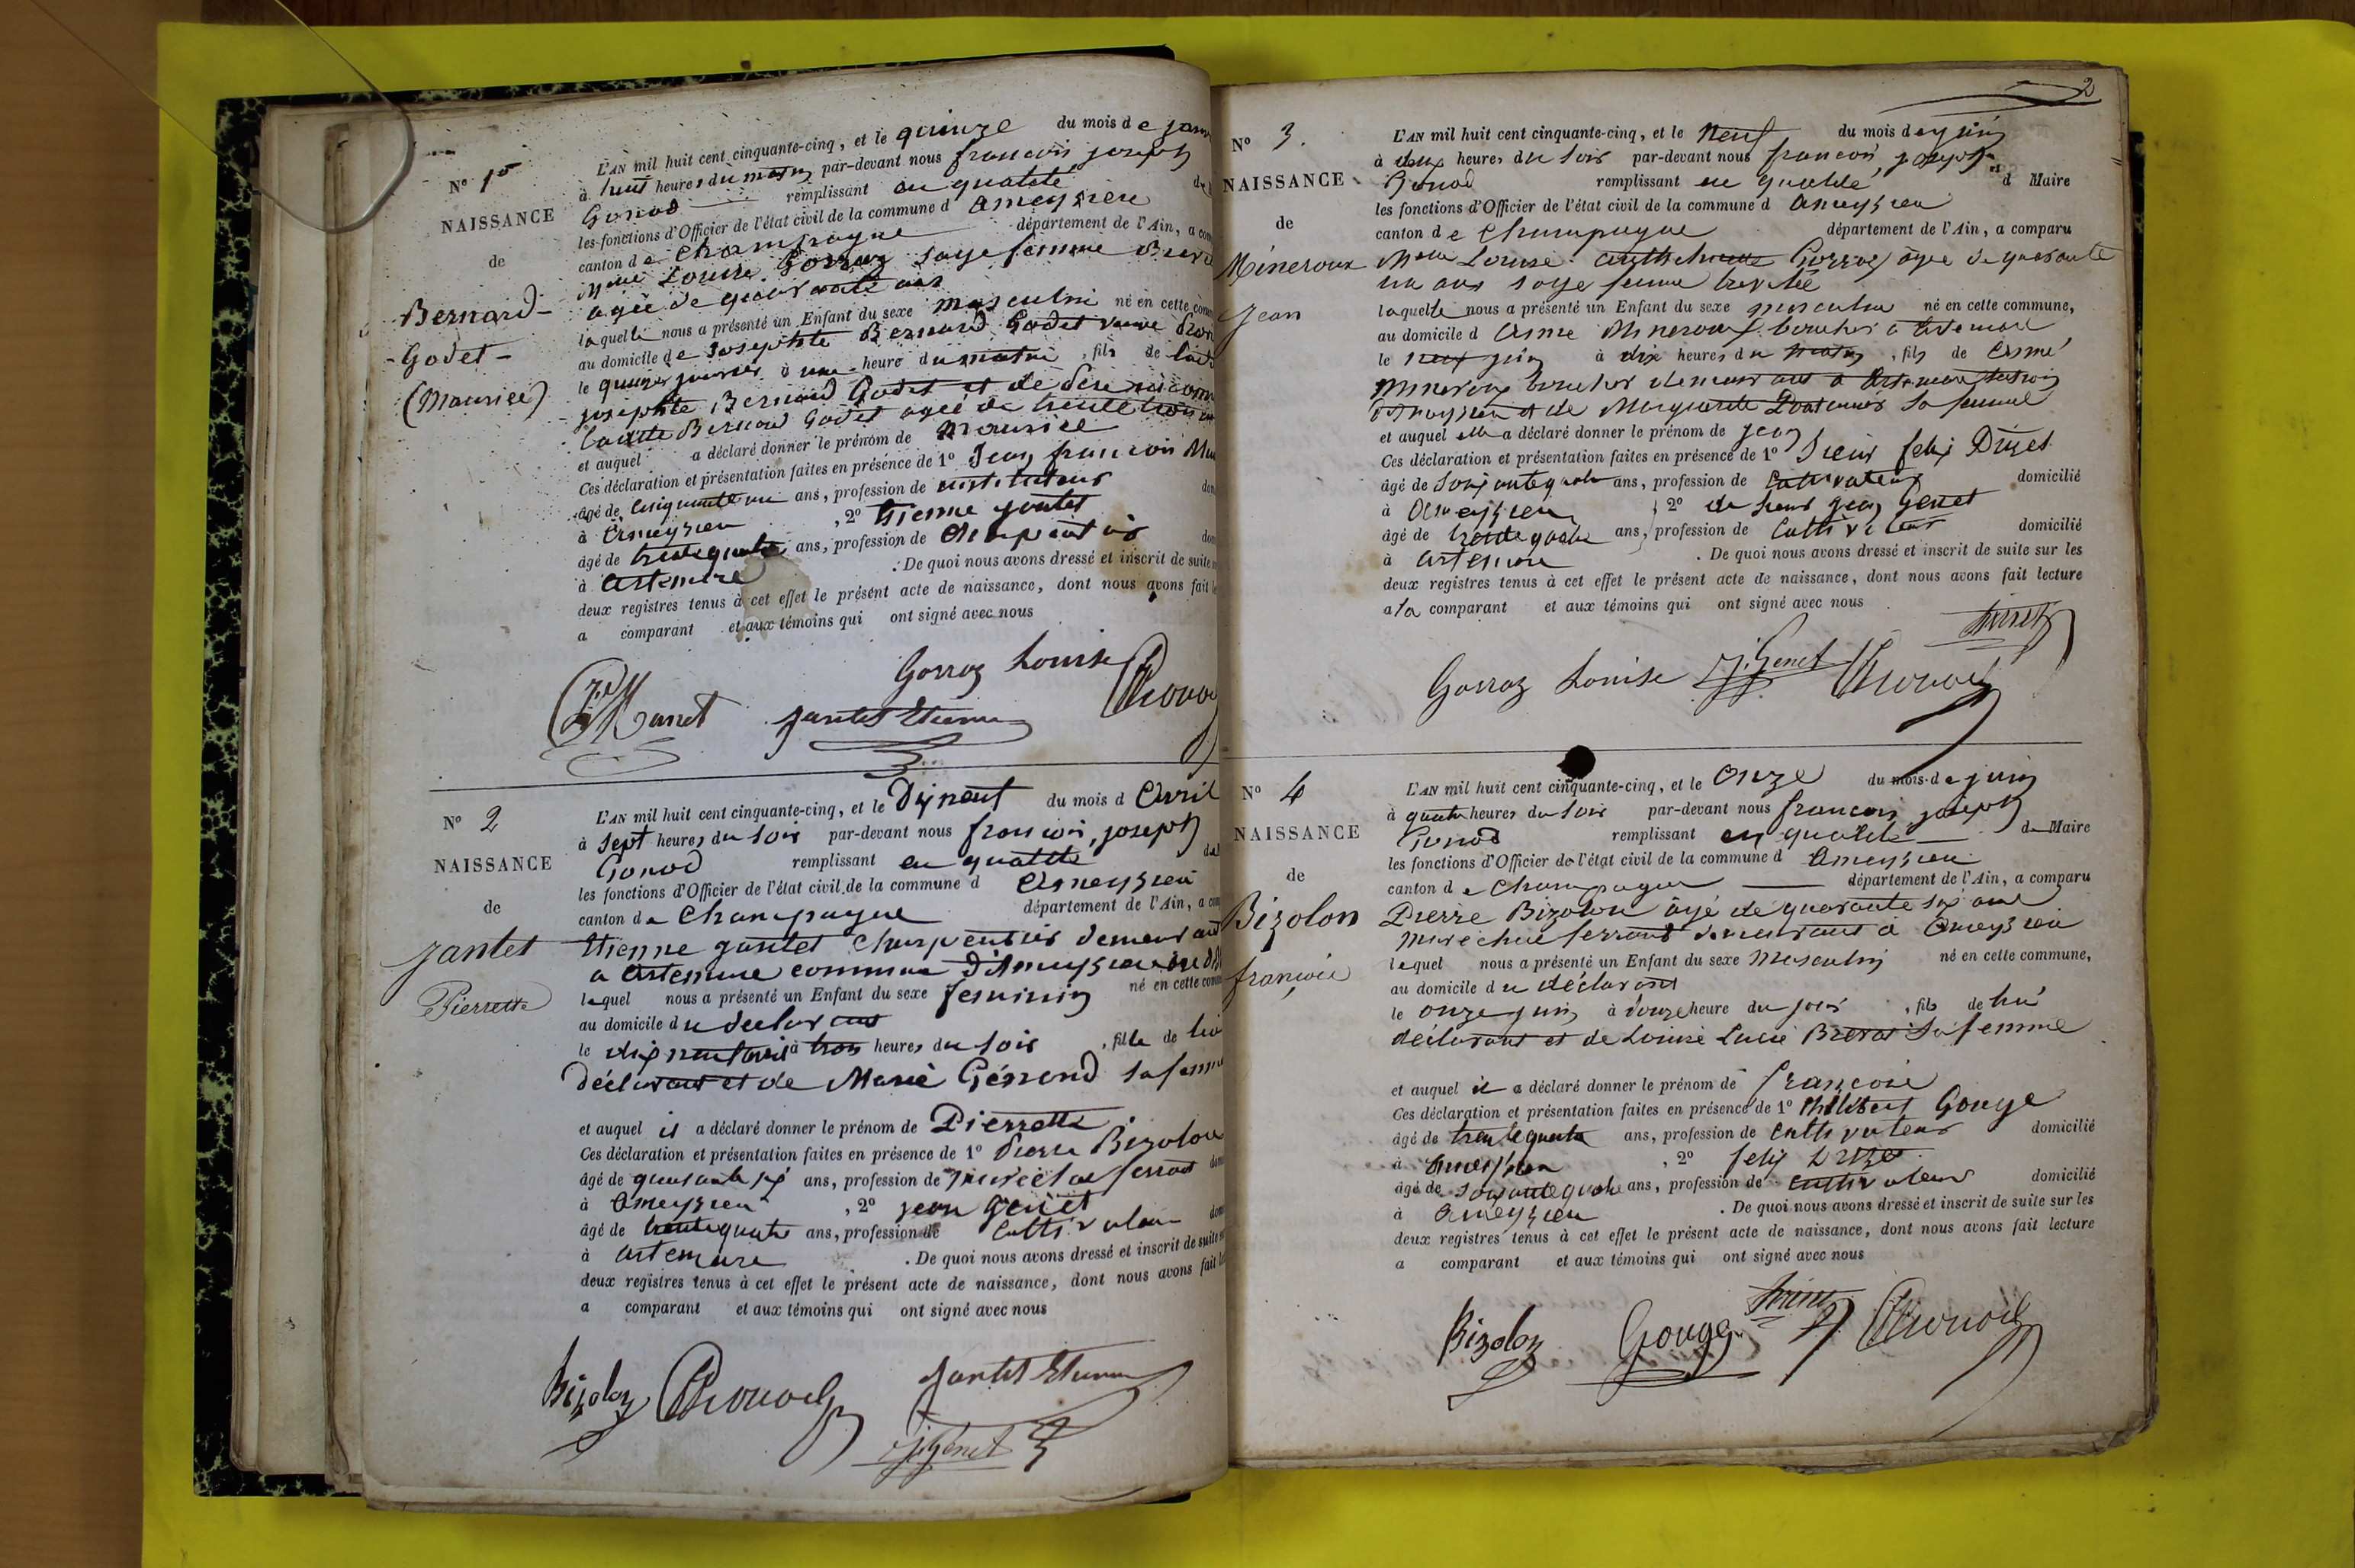 N° 1er
NAISSANCE
de
Bernard-
-Godet-
(Maurice)
L'AN mil huit cent cinquante-cinq, et le quinze du mois de janv
à huit heures du matin par-devant nous francois joseph
Gonod remplissant en qualité
les fonctions d'Officier de l'état civil de la commune d Ameyzieu
canton de Champagne département de l'Ain, a com
Mme Louise Gorraz sage femme
agée de quarante ans
laquelle nous a présenté un Enfant du sexe masculin né en cette com
au domicile de Josephte Bernard Godet veuve
le quinze janvier à une heure du matin, fils de
josephte Bernard Godet et de père inconn
Bernard Godet agée de trente trois
et auquel a déclaré donner le prénom de Maurice
Ces déclaration et présentation faites en présence de 1° Jean francois
âgé de cinquante un ans, profession de instituteur
à Ameyzieu, 2° Etienne jantet
âgé de trente quatre ans, profession de charpentier
à Artemare . De quoi nous avons dressé et inscrit de suite
deux registres tenus à cet effet le présent acte de naissance, dont nous avons fait
a comparant et aux témoins qui ont signé avec nous
Gorraz Louise
jantet Etienne
Gonod
N° 2
NAISSANCE
de
Jantet
Pierrette
L'AN mil huit cent cinquante-cinq, et le Dixneuf du mois d Avril
à sept heures du soir par-devant nous francois, joseph
Gonod remplissant en qualité
les fonctions d'Officier de l'état civil de la commune d Ameyzieu
canton de Champagne département de l'Ain, a com
Etienne jantet charpentier demeurant
a Artemare commune d'Ameyzieu
lequel nous a présenté un Enfant du sexe feminin né en cette comm
au domicile du declarant
le dix neuf avril à trois heures du soir, fille de lui
déclarant et de Marie Gérrond sa femme
et auquel il a déclaré donner le prénom de Pierrette
Ces déclaration et présentation faites en présence de 1° Pierre Bizolon
âgé de quarante six ans, profession de marechal ferrant
à Ameyzieu, 2° jean Genet
âgé de trente quatre ans, profession de Cultivateur
à Artemare . De quoi nous avons dressé et inscrit de suite
deux registres tenus à cet effet le présent acte de naissance, dont nous avons fait
a comparant et aux témoins qui ont signé avec nous
Bizolon Gonod jantet Etienne
J. Genet
2
N° 3.
NAISSANCE
de
Mineroux
Jean
L'AN mil huit cent cinquante-cinq, et le Neuf du mois de juin
à deux heures du soir par-devant nous francois, joseph
Gonod remplissant en qualité d Maire
les fonctions d'Officier de l'état civil de la commune d Ameyzieu
canton de Champagne département de l'Ain, a comparu
Mme Louise Gorraz agée de quarante
un ans sage femme brevetée
laquelle nous a présenté un Enfant du sexe masculin né en cette commune,
au domicile d Aimé Mineroux boucher a Artemare
le neuf juin à dix heures du matin, fils de Aimé
Mineroux boucher demeurant a Artemare
d'Ameyzieu et de Marguerite sa femme
et auquel elle a déclaré donner le prénom de Jean
Ces déclaration et présentation faites en présence de 1° Sieur felix Druet
âgé de soixante quatre ans, profession de Cultivateur domicilié
à Ameyzieu, 2° de sieur jean Genet
âgé de trente quatre ans, profession de Cultivateur domicilié
à Artemare . De quoi nous avons dressé et inscrit de suite sur les
deux registres tenus à cet effet le présent acte de naissance, dont nous avons fait lecture
a la comparant et aux témoins qui ont signé avec nous
Gorraz Louise J. Genet Gonod
N° 4
NAISSANCE
de
Bizolon
francois
L'AN mil huit cent cinquante-cinq, et le Onze du mois de juin
à quatre heures du soir par-devant nous francois joseph
Gonod remplissant en qualité de Maire
les fonctions d'Officier de l'état civil de la commune d Ameyzieu
canton de Champagne département de l'Ain, a comparu
Pierre Bizolon âgé de quarante six ans
marechal ferrant demeurant à Ameyzieu
lequel nous a présenté un Enfant du sexe Masculin né en cette commune,
au domicile du déclarant
le onze juin à douze heure du jour, fils de lui
déclarant et de Louise Lucie sa femme
et auquel il a déclaré donner le prénom de francois
Ces déclaration et présentation faites en présence de 1° Philibert Gouge
âgé de trente quatre ans, profession de Cultivateur domicilié
à Ameyzieu, 2° felix
âgé de soixante quatre ans, profession de Cultivateur domicilié
à Ameyzieu . De quoi nous avons dressé et inscrit de suite sur les
deux registres tenus à cet effet le présent acte de naissance, dont nous avons fait lecture
a comparant et aux témoins qui ont signé avec nous
Bizolon Gouge Gonod